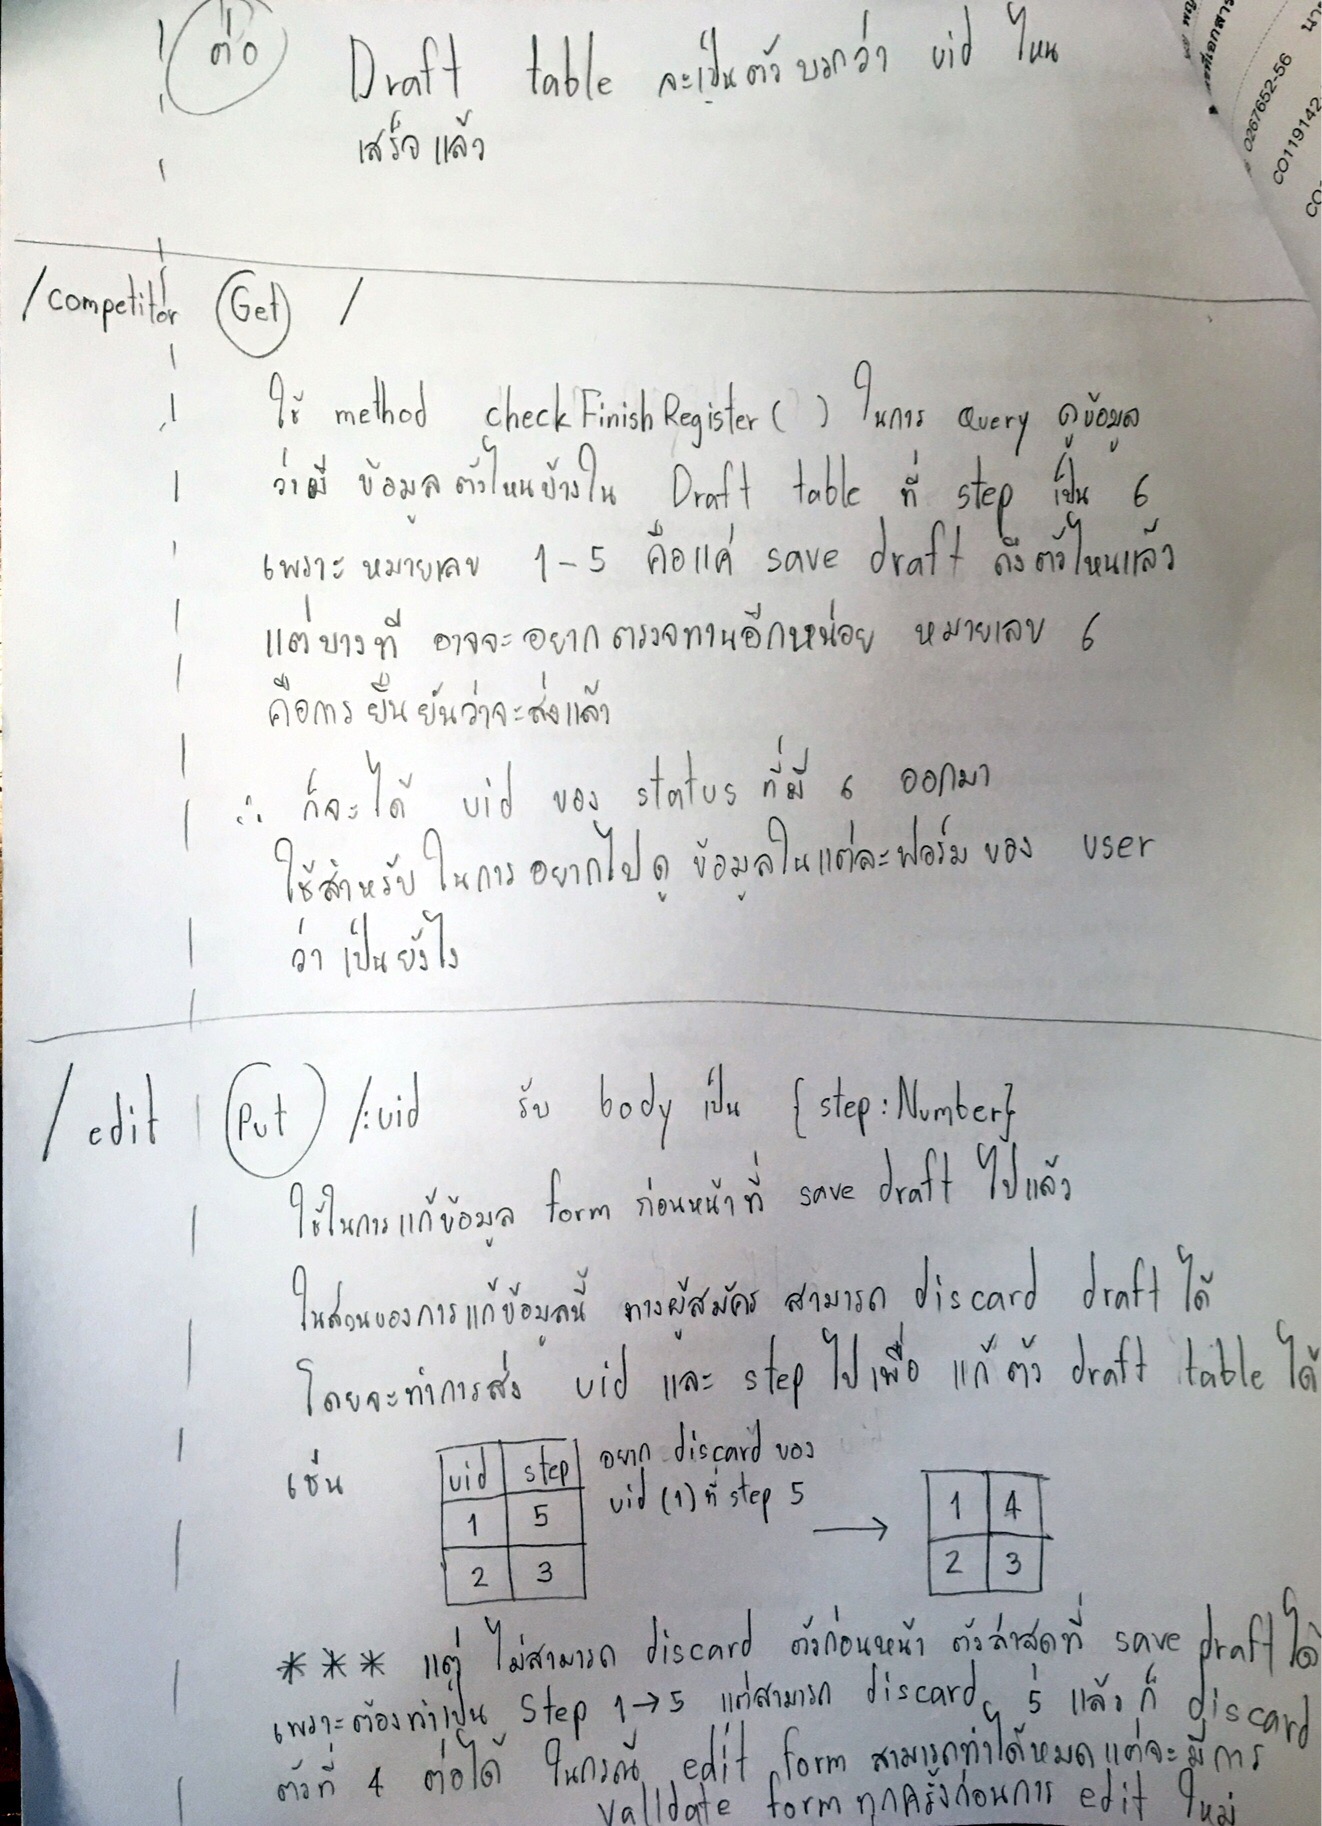 ต่อ
Draft table จะเป็นตัวบอกว่า uid ไหน
เสร็จแล้ว
0267652-56
CO119142
/competitor Get /
ใช้ method checkFinishRegister( ) ในการ query ดูข้อมูล
ว่ามี ข้อมูลตัวไหนบ้างใน Draft table ที่ step เป็น 6
เพราะ หมายเลข 1-5 คือแค่ save draft ถึงตัวไหนแล้ว
แต่บางที อาจจะอยากตรวจทานอีกหน่อย หมายเลข 6
คือการ ยืนยันว่าจะส่งแล้ว
∴ ก็จะได้ uid ของ status ที่มี 6 ออกมา
ใช้สำหรับในการอยากไปดู ข้อมูลในแต่ละฟอร์มของ user
ว่า เป็นยังไง
/edit Put /:uid รับ body เป็น {step:Number}
ใช้ในการแก้ข้อมูล form ก่อนหน้าที่ save draft ไปแล้ว
ในส่วนของการแก้ข้อมูลนี้ ทางผู้สมัคร สามารถ discard draft ได้
โดยจะทำการส่ง uid และ step ไปเพื่อ แก้ตัว draft table ได้
เช่น
uid step
1 5
2 3
อยาก discard ของ
uid (1) ที่ step 5
→
1 4
2 3
*** แต่ ไม่สามารถ discard ตัวก่อนหน้า ตัวล่าสุดที่ save draft ได้
เพราะต้องทำเป็น Step 1→5 แต่สามารถ discard 5 แล้ว ก็ discard
ตัวที่ 4 ต่อได้ ในกรณี edit form สามารถทำได้หมดแต่จะมีการ
validate form ทุกครั้งก่อนการ edit ใหม่